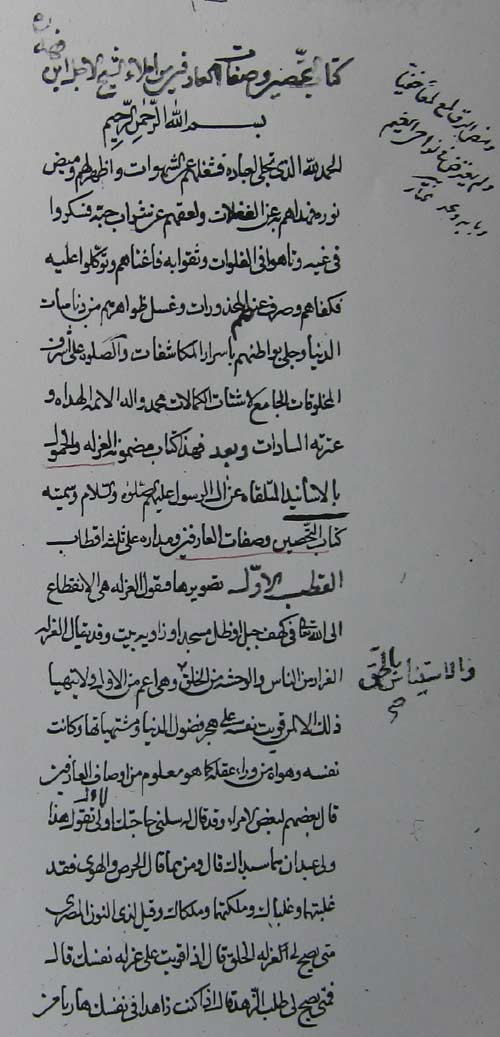 كتاب التحصين وصفات العارفين من املاء الشيخ الاجل ابن
فهد
بسم الله الرحمن الرحيم
الحمد لله الذى تجلى لعباده فشغلهم عن الشهوات واظهر لهم وميض
نوره فهداهم به عن الغفلات ولعقهم عن ثواب حبه فسكروا
فى غيبه وتاهوا فى الفلوات وثقوا به فاغناهم وتوكلوا عليه
فكفاهم وصرف عنهم المحذورات وغسل ظواهرهم من دناسات
الدنيا وجلى بواطنهم باسرار المكاشفات والصلوة على اشرف
المخلوقات الجامع لاشتات الكمالات محمد واله الائمة الهداه و
عترته السادات وبعد فهذا كتاب مضمونه العزله والخمول
بالاسانيد المتلقاه عن ال الرسول عليهم الصلوة والسلام وسميته
كتاب التحصين وصفات العارفين ومداره على ثلثه اقطاب
القطب الاول تصويرها فنقول العزله هى الانقطاع
الى الله تعالى فى كهف جبل او ظل مسجد او زاويه بيت وقد يقال العزله
الفرار من الناس والوحشه من الخلق وهى اعم من الاول ولا يتهيا
والاستيناس بالحق
صح
ذلك الا لمن قويت نفسه على هجر فضول الدنيا ومشتهياتها وكانت
نفسه وهواه من وراء عقله كما هو معلوم من اوصاف العارفين
قال بعضهم لبعض الامراء وقد قال له سلنى حاجتك اولى تقول هذا
ولى عبدان هما سيداك قال ومن هما قال الحرص والهوى فقد
غلبتهما وغلباك وملكتهما وملكاك وقيل لذى النون المصرى
متى يصح لى العزله الخلق قال اذا قويت على عزله نفسك قال
فمتى يصح لى طلب الزهد قال اذا كنت زاهدا فى نفسك هاربا من